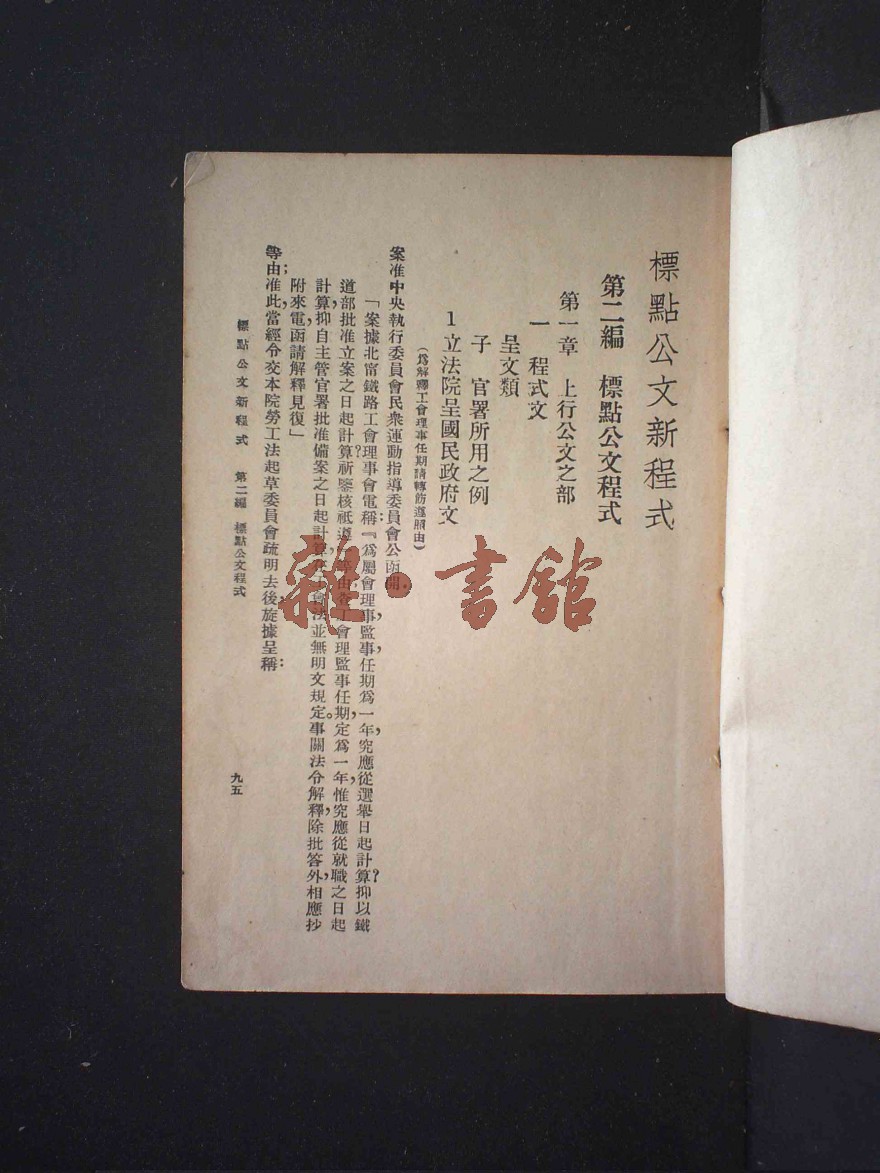 標點公文新程式
第二編　標點公文程式
第一章　上行公文之部
一　程式文
呈文類
子　官署所用之例
1 立法院呈國民政府文
（爲解釋工會理事任期請轉飭遵照由）
案准中央執行委員會民衆運動指導委員會公函開：
「案據北甯鐵路工會理事會電稱：『爲屬會理事，監事，任期爲一年，究應從選舉日起計算？抑以鐵
道部批准立案之日起計算？祈鑒核祇遵。』等由；查工會理監事任期，定爲一年，惟究應從就職之日起
計算，抑自主管官署批准備案之日起計算，在工會法並無明文規定。事關法令解釋，除批答外，相應抄
附來電，函請解釋見復」
等由；准此，當經令交本院勞工法起草委員會疏明去後，旋據呈稱：
標點公文新程式　第二編　標點公文程式
九五
雜·書館